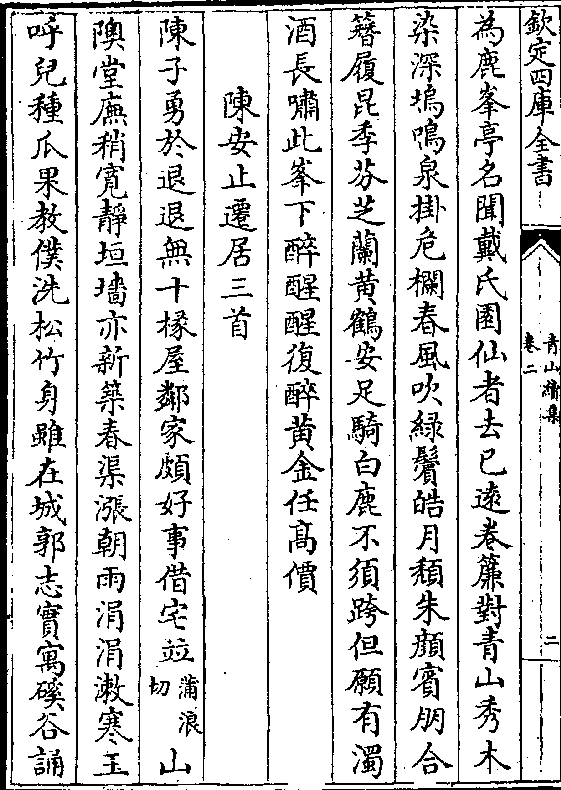 欽定四庫全書
青山續集
卷二
二
為鹿峯亭名聞戴氏園仙者去已遠巻簾對青山秀木
染深塢鳴泉掛危欄春風吹緑鬢皓月頽朱顔賓朋合
簪履昆季芬芝蘭黄鶴安足騎白鹿不須跨但願有濁
酒長嘯此峯下醉醒醒復醉黄金任髙價
陳安止遷居三首
陳子勇於退退無十椽屋鄰家頗好事借宅竝蒲浪切山
隩堂廡稍寛靜垣墻亦新築春渠漲朝雨涓涓漱寒玉
呼兒種瓜果教僕洗松竹身雖在城郭志實寓磎谷誦